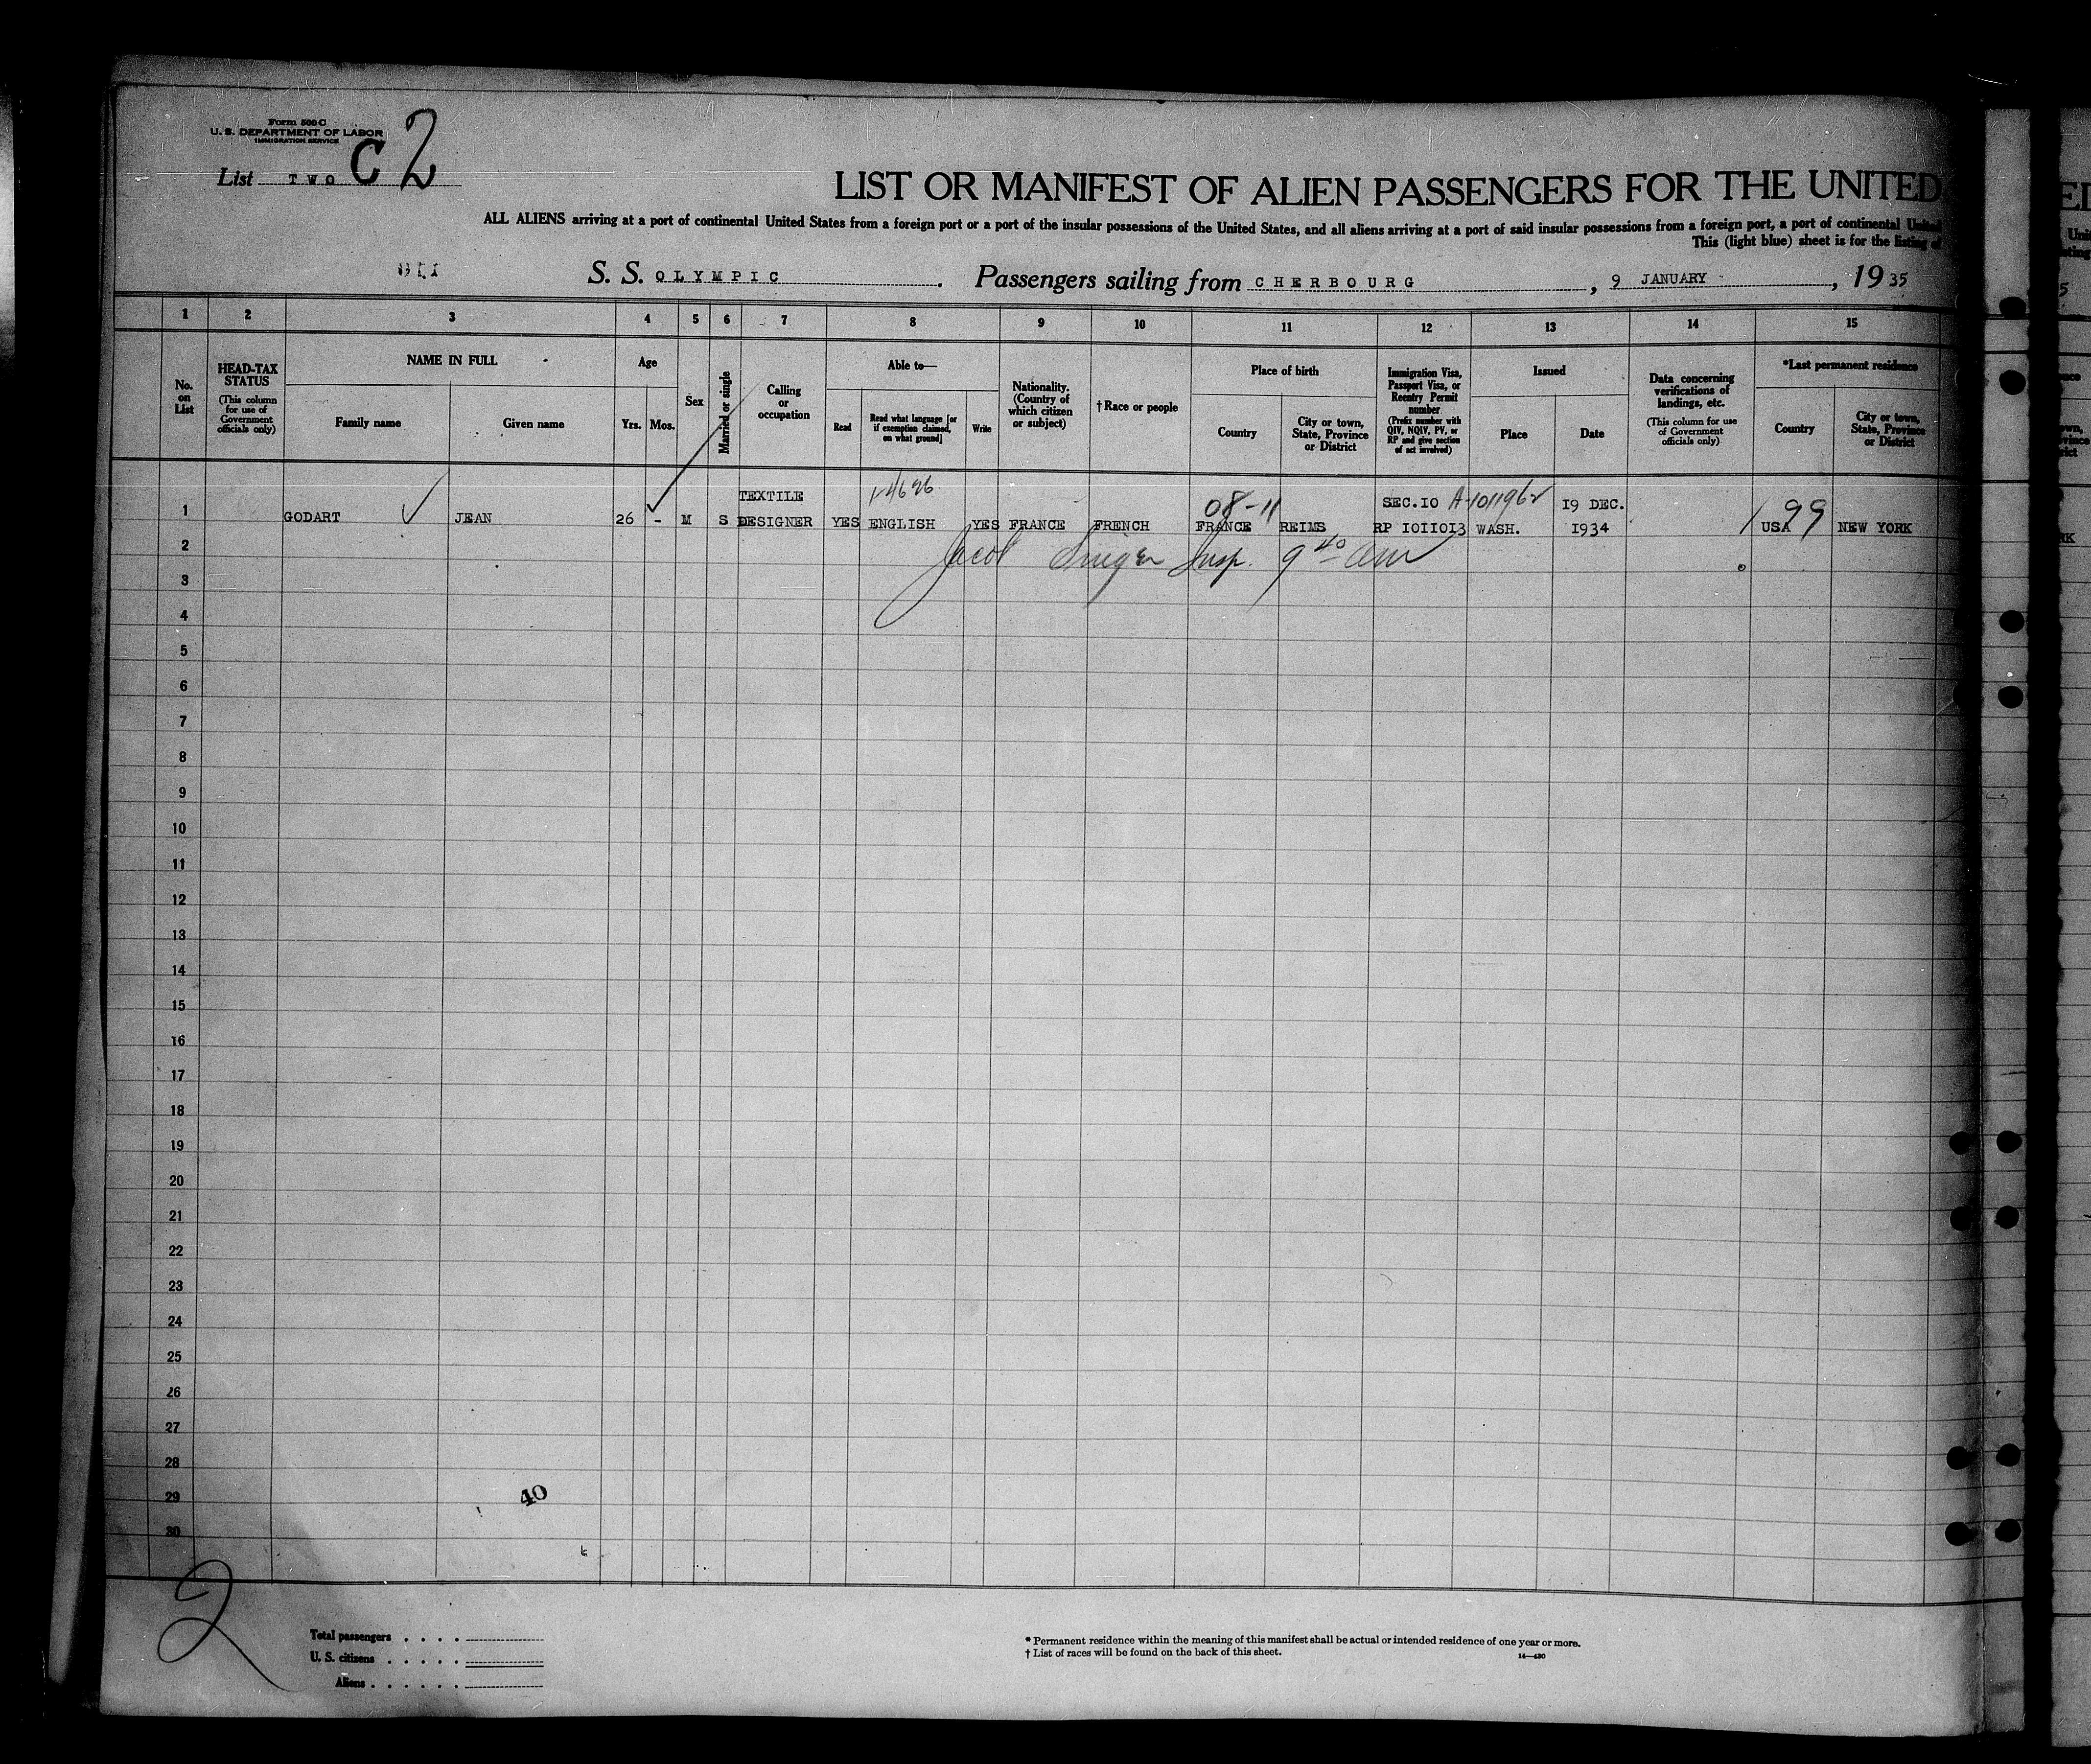 Form 500 C
U. S. DEPARTMENT OF LABOR
IMMIGRATION SERVICE
List TWO C 2
LIST OR MANIFEST OF ALIEN PASSENGERS FOR THE UNITED
ALL ALIENS arriving at a port of continental United States from a foreign port or a port of the insular possessions of the United States, and all aliens arriving at a port of said insular possessions from a foreign port, a port of continental United
This (light blue) sheet is for the listing of
S. S. OLYMPIC. Passengers sailing from CHERBOURG, 9 JANUARY, 1935
1 2 3 4 5 6 7 8 9 10 11 12 13 14 15
No. on List
HEAD-TAX STATUS (This column for use of Government officials only)
NAME IN FULL
Family name
Given name
Age
Yrs.
Mos.
Sex
Married or single
Calling or occupation
Able to—
Read
Read what language [or if exemption claimed, on what ground]
Write
Nationality. (Country of which citizen or subject)
†Race or people
Place of birth
Country
City or town, State, Province or District
Immigration Visa, Passport Visa, or Reentry Permit number (Prefix number with QIV, NQIV, PV, or RP and give section of act involved)
Issued
Place
Date
Data concerning verifications of landings, etc. (This column for use of Government officials only)
*Last permanent residence
Country
City or town, State, Province or District
TEXTILE 08-11 SEC.10 19 DEC. 99
1 GODART JEAN 26 - M S DESIGNER YES ENGLISH YES FRANCE FRENCH FRANCE REIMS RP 1011013 WASH. 1934 USA NEW YORK
2 Jacob Insp. 9 40 am
3
4
5
6
7
8
9
10
11
12
13
14
15
16
17
18
19
20
21
22
23
24
25
26
27
28
29 40
30
2
Total passengers . . . .
U. S. citizens . . . . .
Aliens . . . . . .
* Permanent residence within the meaning of this manifest shall be actual or intended residence of one year or more.
† List of races will be found on the back of this sheet.
14—430